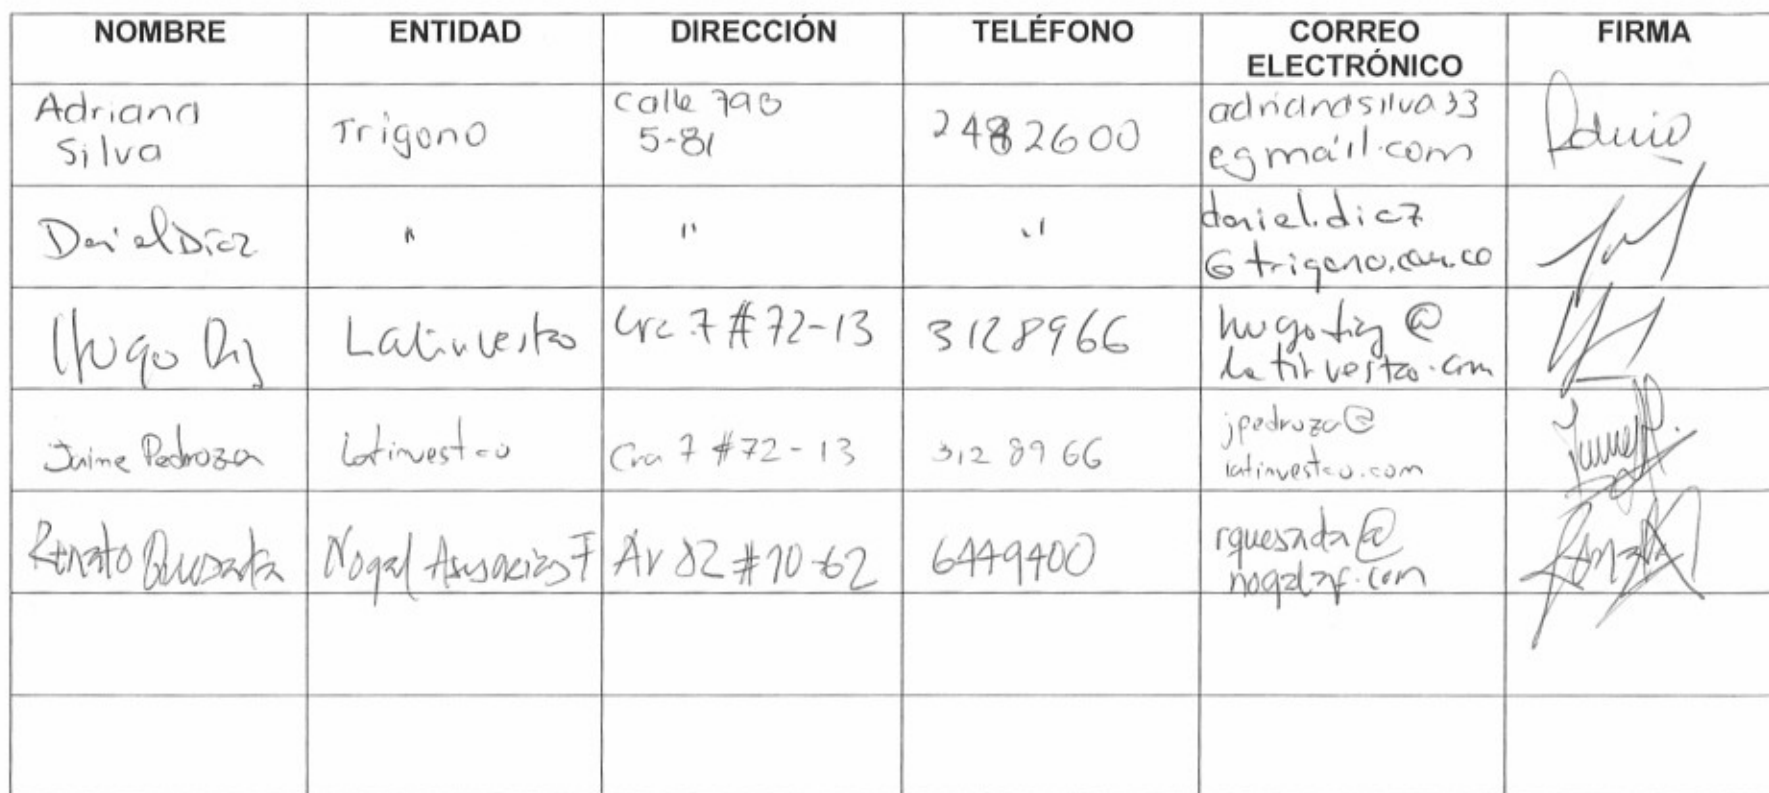 NOMBRE ENTIDAD DIRECCIÓN TELÉFONO CORREO ELECTRÓNICO FIRMA
Adriana Silva Trigono calle 79B 5-81 2482600 adrianasilva33 @gmail.com
Daniel Díaz " " " daniel.diaz @trigono.com.co
Hugo Latinvestco Cra 7 #72-13 3128966 @ latinvestco.com
Jaime Pedroza Latinvestco Cra 7 #72-13 312 89 66 jpedroza@ latinvestco.com
Renato Quesada Nogal Av 82 #10-62 6449400 rquesada@ nogalaf.com